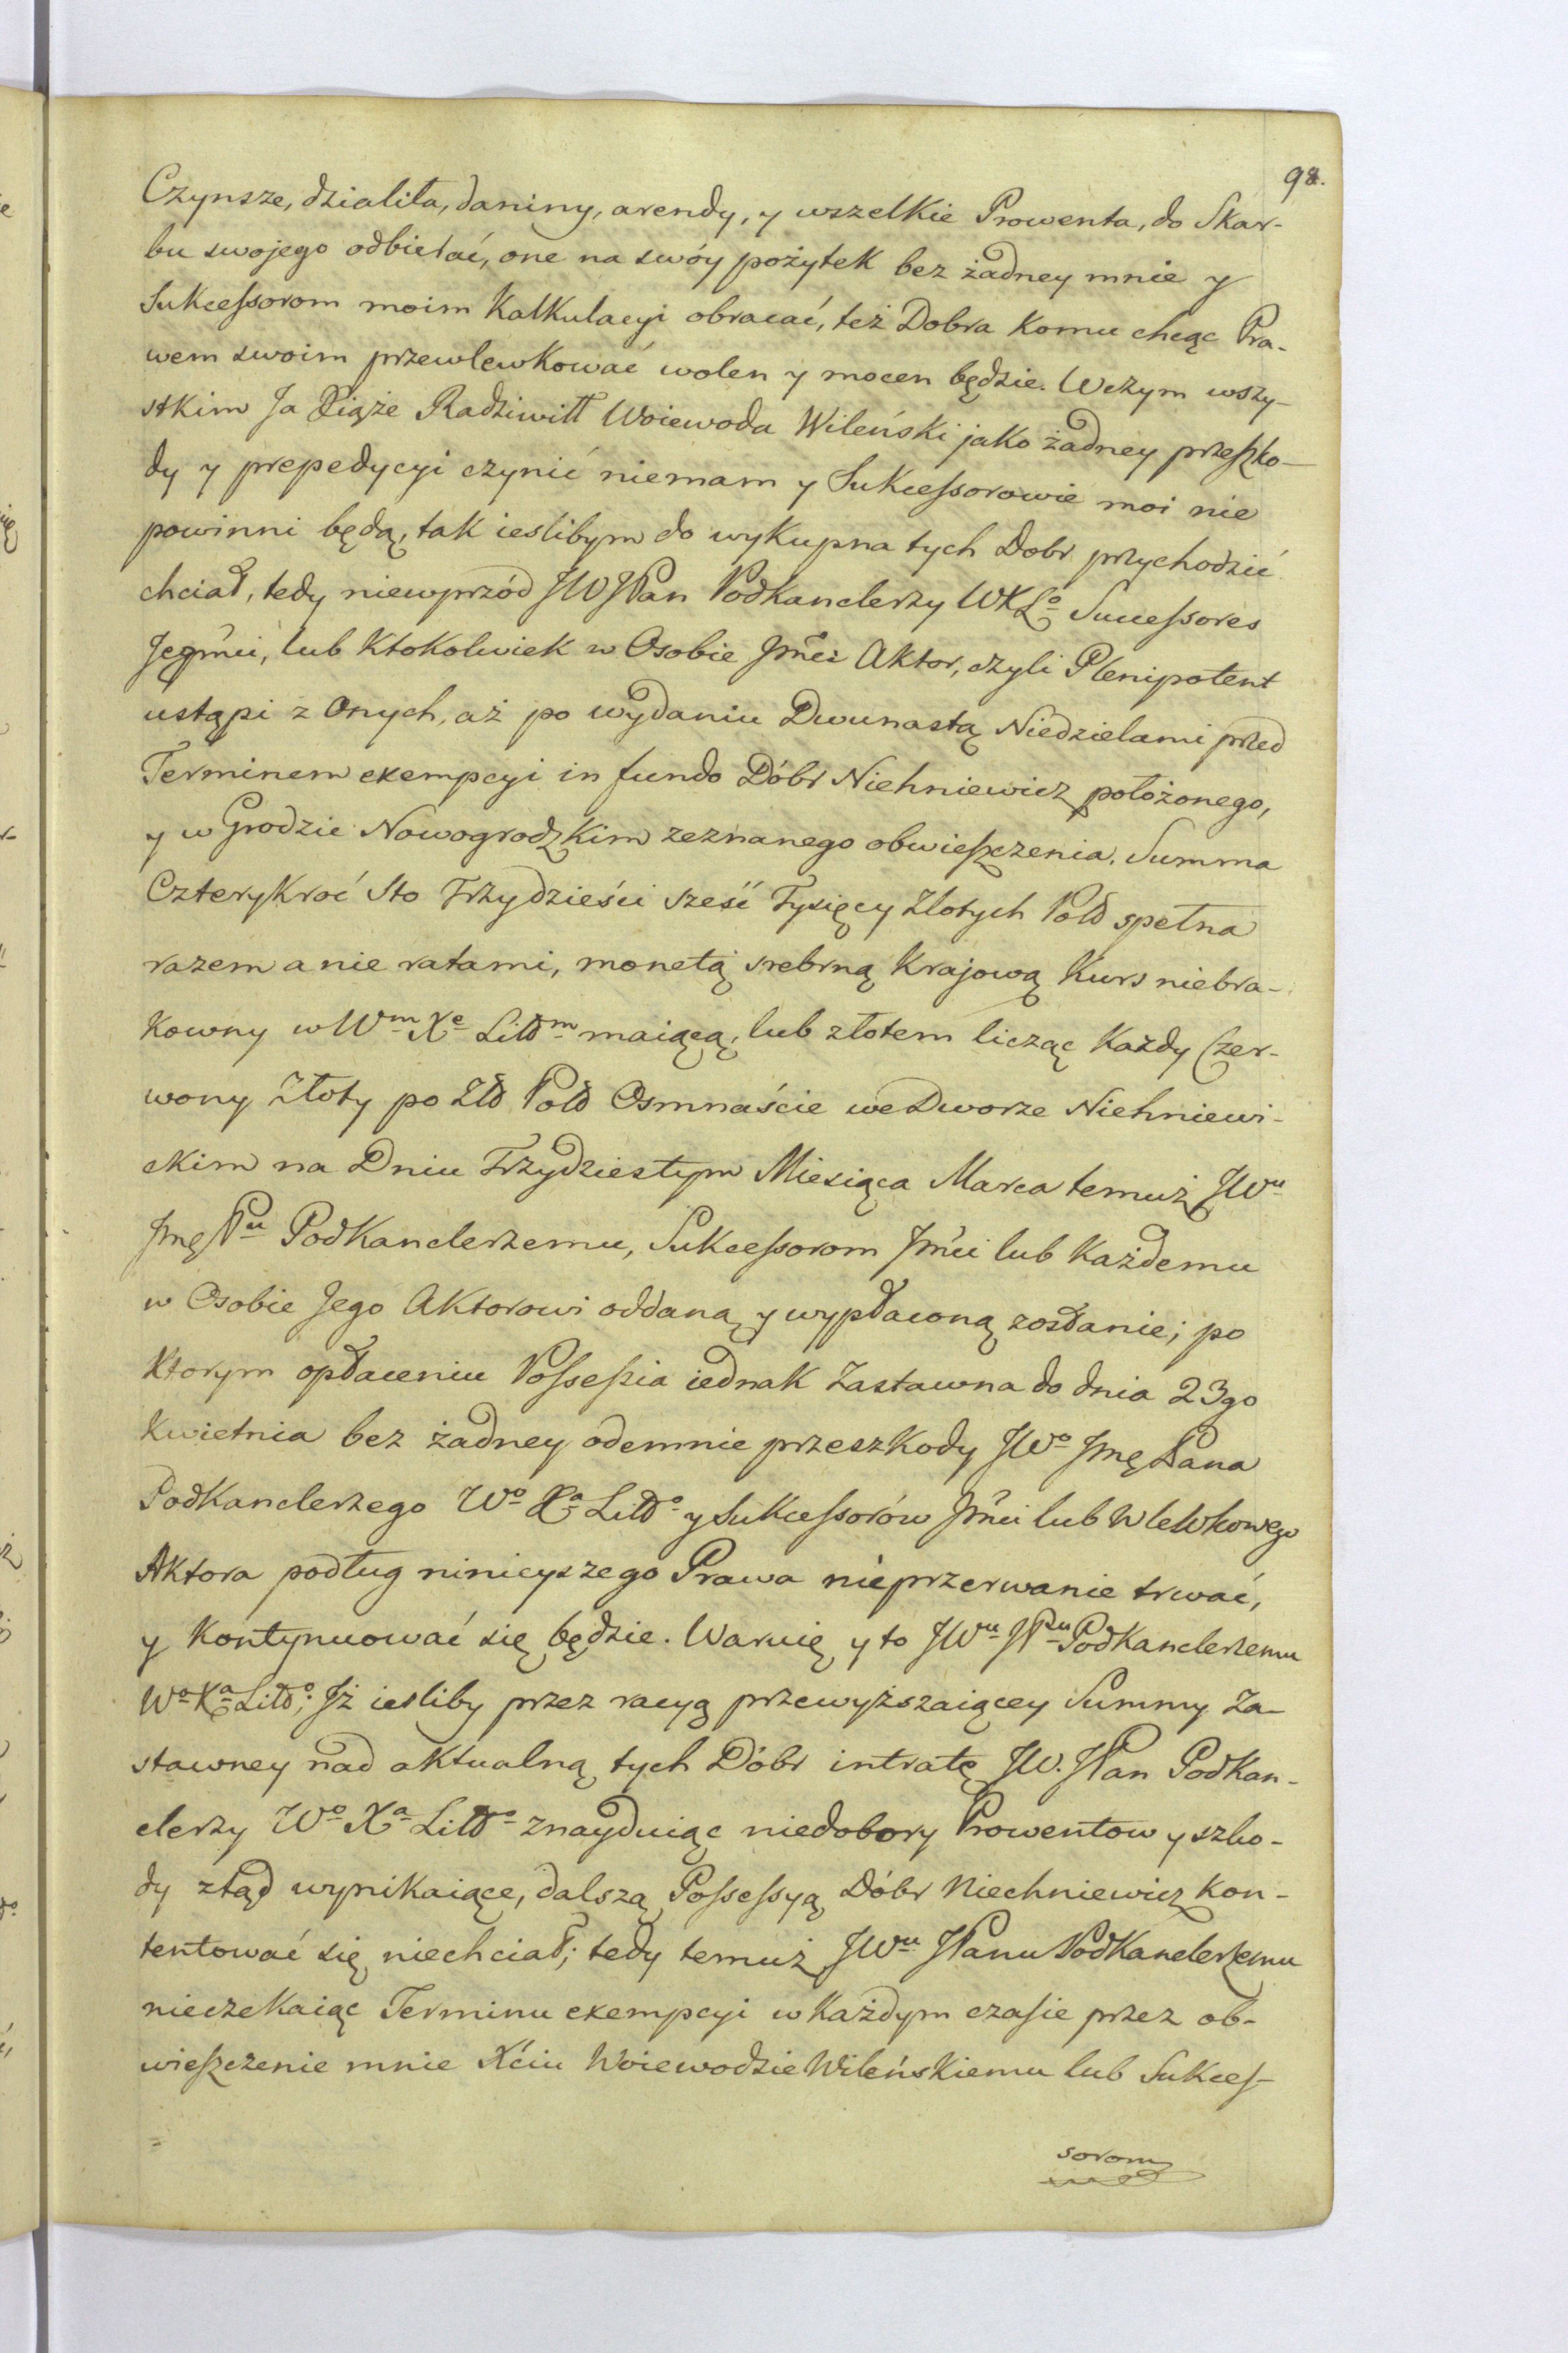 98.
Czynsze, dzialiła, daniny, arendy, y wszelkie Prowenta, do Skar-
bu swojego odbierać, one na swóy pożytek bez żadney mnie y
Sukcessorom moim Kalkulacyi obracać, też Dobra komu chcąc Pra-
wem swoim przewlewkować wolen y mocen będzie. Wczym wszy-
stkim Ja Xiąże Radziwiłł Woiewoda Wileński jako żadney przeszko-
dy y prepedycyi czynić niemam y Sukcessorowie moi nie
powinni będą, tak iesliby​m do wykupna tych Dobr przychodzić
chciał, tedy niewprzód JWJPan Podkanclerzy WXLo Sucessores
Jegmci, lub Ktokolwiek w Osobie Jmci Aktor, czyli Plenipotent
ustąpi z Onych, aż po wydaniu Dwunastą Niedzielami przed
Terminem exempcyi in fundo Dóbr Niehniewicz położonego,
y w Grodzie Nowogrodzkim zeznanego obwieszczenia. Summa
Czterykroć Sto Trzydzieści sześć Tysięcy Złotych Pold spełna
razem a nie ratami, monetą srebrną Krajową Kurs niebra-
kowny w Wm Xe Littm maiącą, lub złotem licząc Każdy Czer-
wony Złoty po Złł Pold Osmnaście we Dworze Niehniewi-
ckim na Dniu Trzydziestym Miesiąca Marca temuż JWu
Jmę Pu Podkanclerzemu, Sukcessorom Jmci lub Każdemu
w Osobie Jego Aktorowi oddaną y wypłaconą zostanie; po
Ktorym opłaceniu Possessia iednak Zastawna do dnia 23go
Kwietnia bez żadney odemnie przeszkody JWo Jmę Pana
Podkanclerzego Wo Xa Litto y Sukcessorów Jmci lub Wlewkowego
Aktora podług ninieyszego Prawa nieprzerwanie trwać,
y kontynuować się będzie. Waruię y to JWu JPu Podkanclerzemu
Wo Xa Litto; Jż iesliby przez racyą przewyższaiącey Summy Za-
stawney nad aktualną tych Dóbr intratę JW. JPan Podkan-
clerzy Wo Xa Litto znayduiąc niedobory Prowentow y szko-
dy ztąd wynikaiące, dalszą Possessyą Dóbr Niechniewicz kon-
tentować się niechciał; tedy temuż JWu JPanu Podkanclerzemu
nieczekaiąc Terminu exempcyi w każdym czasie przez ob-
wieszczenie mnie Xciu Woiewodzie Wileńskiemu lub Sukces-
sorom